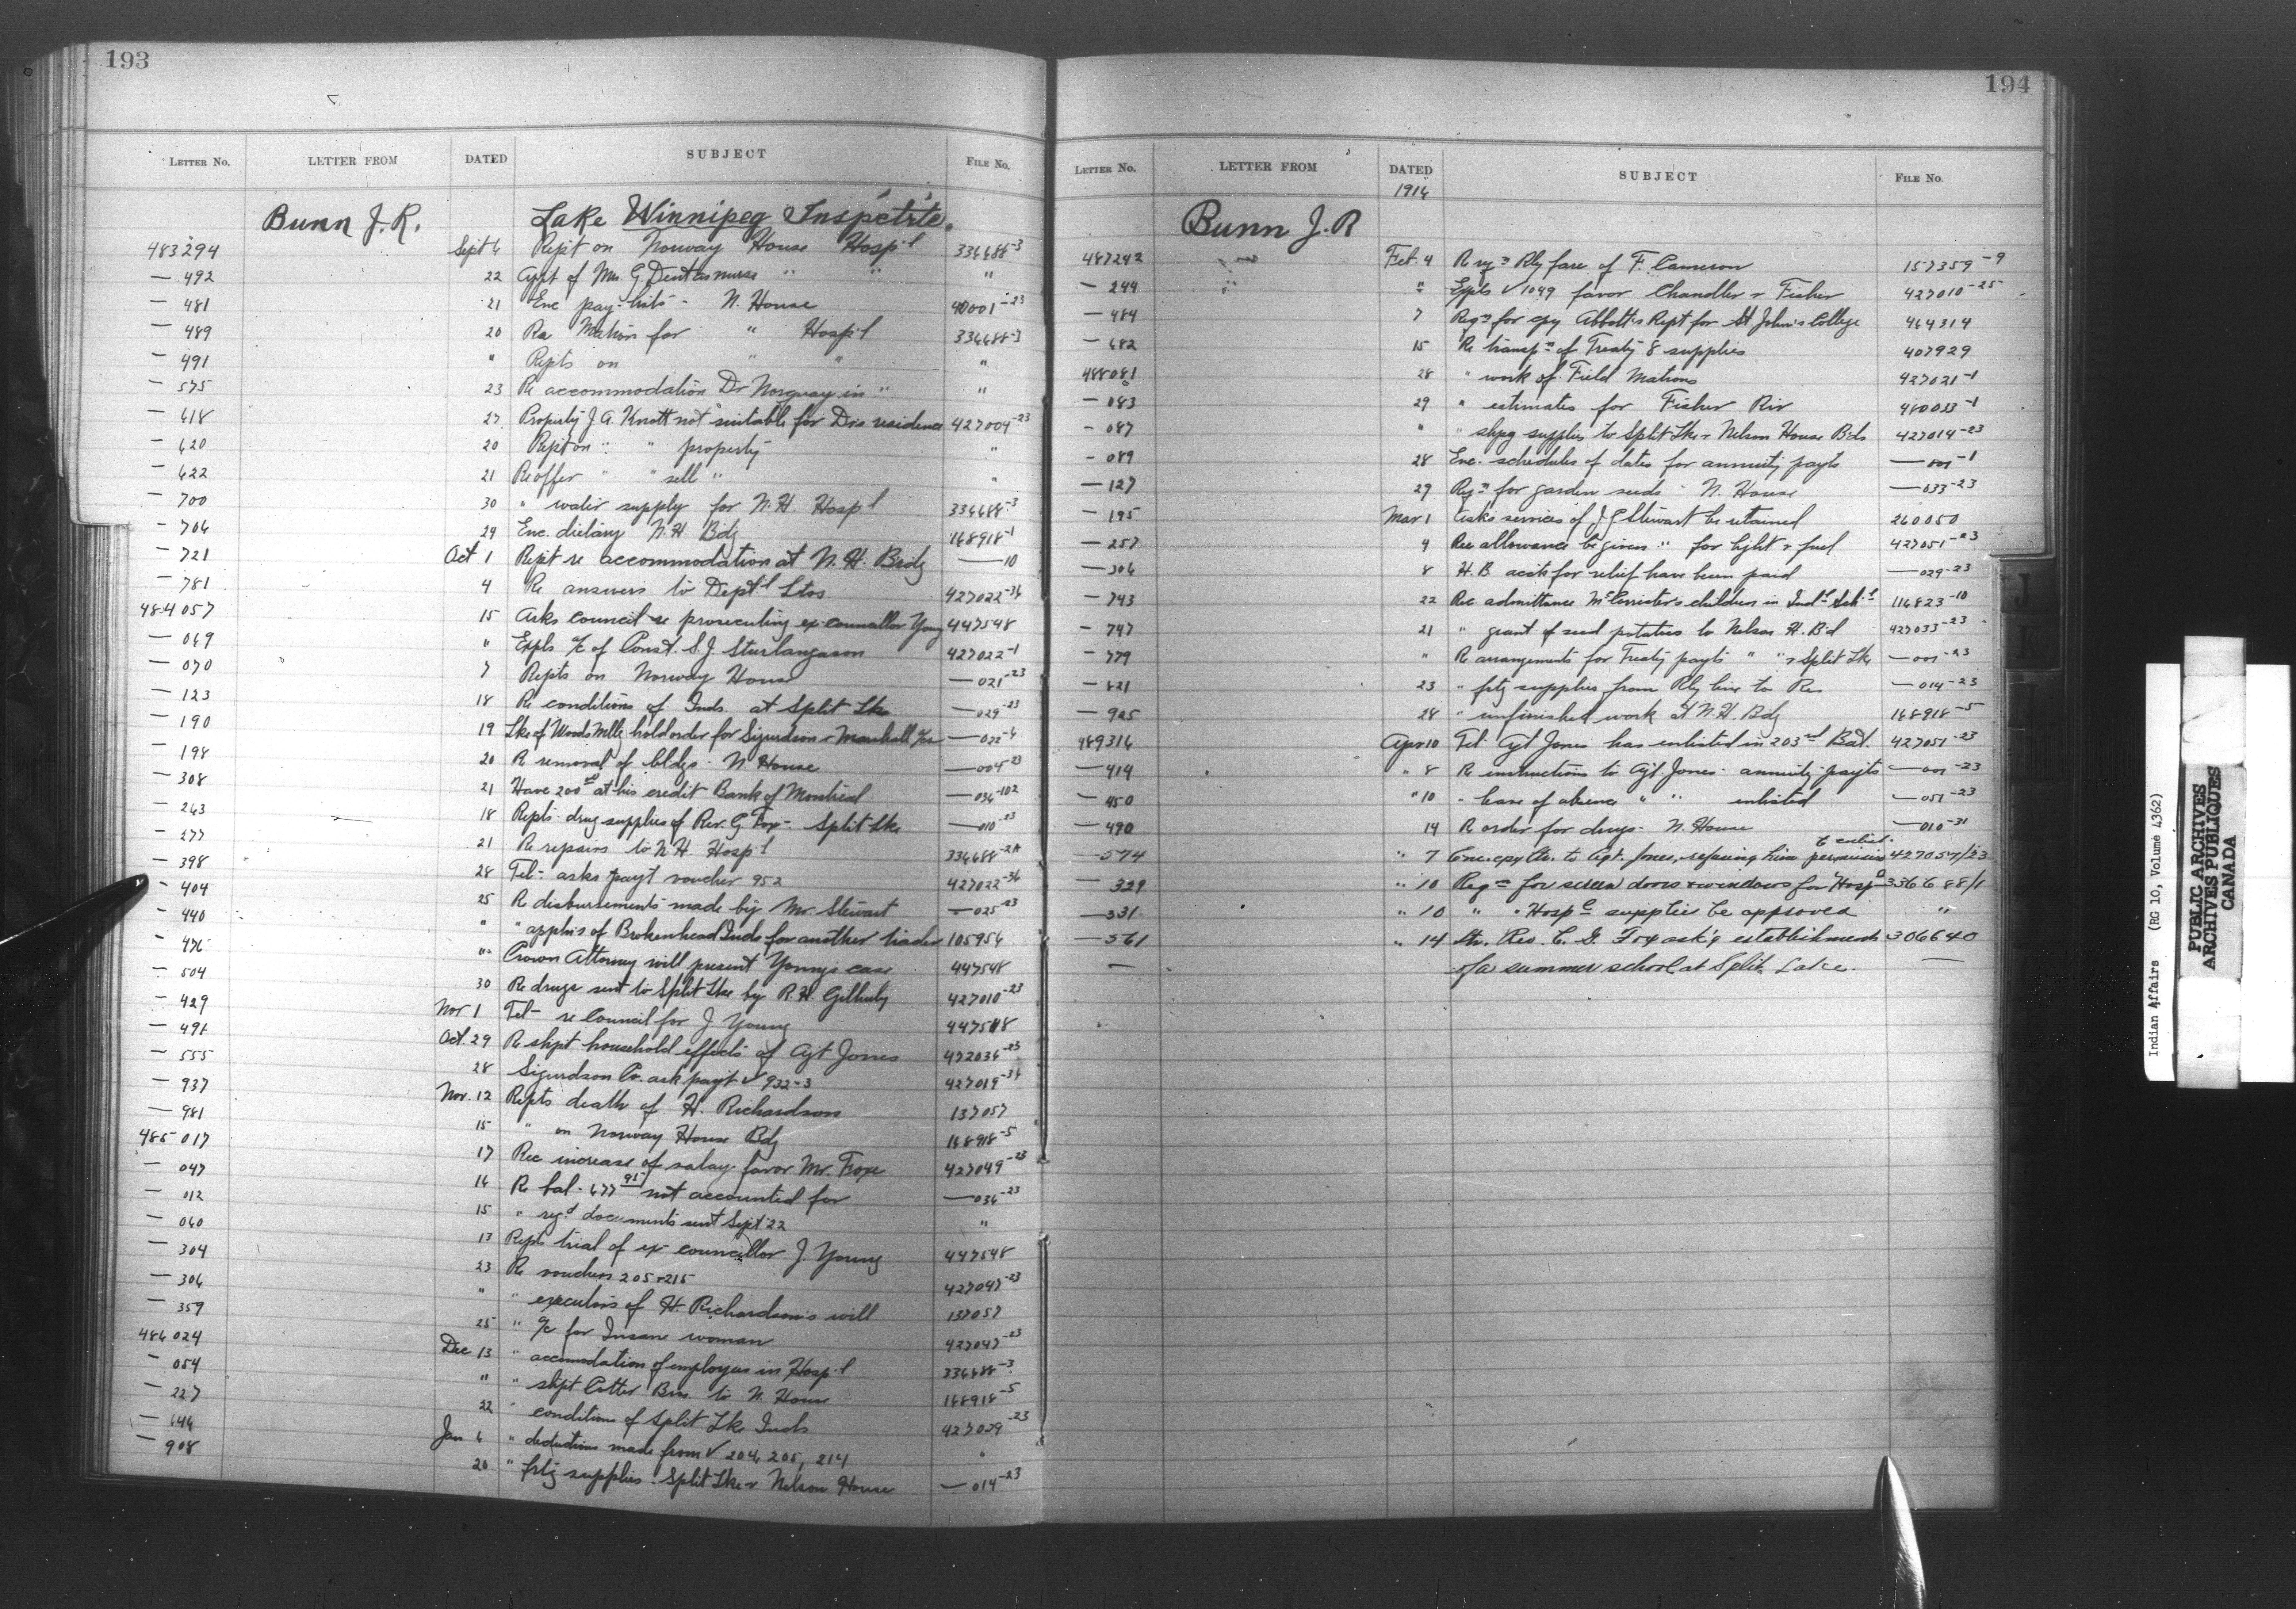 193
LETTER No. LETTER FROM DATED SUBJECT FILE No.
Bunn J. R. Lake Winnipeg Inspetrte.
483294 Sept 6 Rept on Norway House Hosp'l 336688-3
— 492 22 Appt of Mrs G Dent as nurse " " "
— 481 21 Enc pay-lists - N. House 40001-23
— 489 20 Re Matron for " Hosp'l 336688-3
— 491 " Repts on " " "
— 575 23 Re accommodation Dr Norquay in " "
— 618 27 Property J A. Knott not suitable for Drs residence 427004-23
— 620 20 Rept on " " property "
— 622 21 Re offer " " sell " "
— 700 30 " water supply for N. H. Hosp'l 336688-3
— 706 29 Enc. dietary N. H Bdg 168918-1
— 721 Oct 1 Rept re accommodation at N. H. Brdg — 10
— 781 4 Re answers to Dept'l Ltrs 427022-36
484057 15 Asks council re prosecuting ex-councillor Young 447548
— 069 " Expls a/c of Const. S. J. Sturlangason 427022-1
— 070 7 Repts on Norway House — 021-23
— 123 18 Re conditions of Inds. at Split Lke — 029-23
— 190 19 Lke of Woods Mllg hold order for Sigurdson & Marshall — 022-4
— 198 20 Re removal of bldgs - N. House — 004-23
— 308 21 Have 200 at his credit Bank of Montreal — 036-102
— 263 18 Repts - drug supplies of Rev. G Fox - Split Lke — 010-23
— 277 21 Re repairs to N H. Hosp'l 336688-2A
— 398 28 Tel - asks payt voucher 952 427022-36
— 404 25 Re disbursements made by Mr Stewart — 025-23
— 440 " " applns of Brokenhead Inds for another trader 105956
— 476 " Crown Attorney will present Young's case 447548
— 504 30 Re drugs sent to Split Lke by R. H. Gilhuly 427010-23
— 429 Nov 1 Tel - re Council for J Young 447548
— 491 Oct. 29 Re shpt household effects of Agt Jones 427036-23
— 555 28 Sigurdson Co. ask payt v 932-3 427019-36
— 937 Nov. 12 Repts death of H. Richardson 137057
— 981 15 " on Norway House Bdg 168918-5
485017 17 Rec increase of salary favor Mr. Fox 427049-23
— 047 16 Re bal. 677 95 not accounted for — 036-23
— 012 15 " reg'd documents sent Sept 22 "
— 060 13 Repts trial of ex councillor J. Young 447548
— 304 23 Re vouchers 205 & 215 427047-23
— 306 " " executors of H. Richardson's will 137057
— 359 25 " a/c for Insane woman 427047-23
486024 Dec 13 " accomodation of employees in Hosp'l 336688-3
— 054 " " shpt Cotter Bros. to N. House 168918-5
— 227 22 " conditions of Split Lke Inds 427029-23
— 646 Jan 6 " deductions made from v 204, 205, 214 "
— 908 20 " frtg supplies - Split Lke & Nelson House — 014-23
194
LETTER No. LETTER FROM DATED SUBJECT FILE No.
1916
Bunn J. R
487242 Feb. 4 Re Rly fare of F. Cameron 157359-9
— 244 " " Expls v 1049 favor Chandler & Fisher 427010-25
— 484 7 Reqn for cpy Abbott's Rept for St John's College 464314
— 682 15 Re transpn of Treaty 8 supplies 407929
488081 28 " work of Field Matrons 427021-1
— 083 29 " estimates for Fisher Riv 480033-1
— 087 " " shpg supplies to Split Lke & Nelson House Bds 427014-23
— 089 28 Enc. schedules of dates for annuity payts — 001-1
— 127 29 Reqn for garden seeds - N. House — 033-23
— 195 Mar 1 Asks services of J G Stewart be retained 260050
— 257 4 Rec allowance be given " for light & fuel 427051-23
— 306 8 H. B. accts for relief have been paid — 029-23
— 743 22 Rec admittance McCorrister's children in Ind'l Sch'l 116823-10
— 747 21 " grant of seed potatoes to Nelson H. Bd 427033-23
— 779 " Re arrangements for Treaty payts " " & Split Lke — 001-23
— 821 23 " frtg supplies from Rly line to Res — 014-23
— 925 28 " unfinished work at N. H. Bdg 168918-5
489316 Apr 10 Tel - Agt Jones has enlisted in 203rd Bat. 427051-23
— 414 " 8 Re instructions to Agt Jones - annuity payts — 001-23
— 450 " 10 " leave of absence " " enlisted — 051-23
— 490 14 Re order for drugs - N. House — 010-31
to enlist.
— 574 " 7 Enc. cpy ltr. to Agt. Jones, refusing him permission 427057/23
— 329 " 10 Reqn for screen doors & windows for Hosp'l 336688/1
— 331 " 10 " " Hosp'l supplies be approved "
— 561 " 14 Ltr. Rev. C. G. Fox ask'g establishment 306640
— of a summer school at Split Lake. —
J
K
Indian Affairs (RG 10, Volume 4362)
PUBLIC ARCHIVES
ARCHIVES PUBLIQUES
CANADA